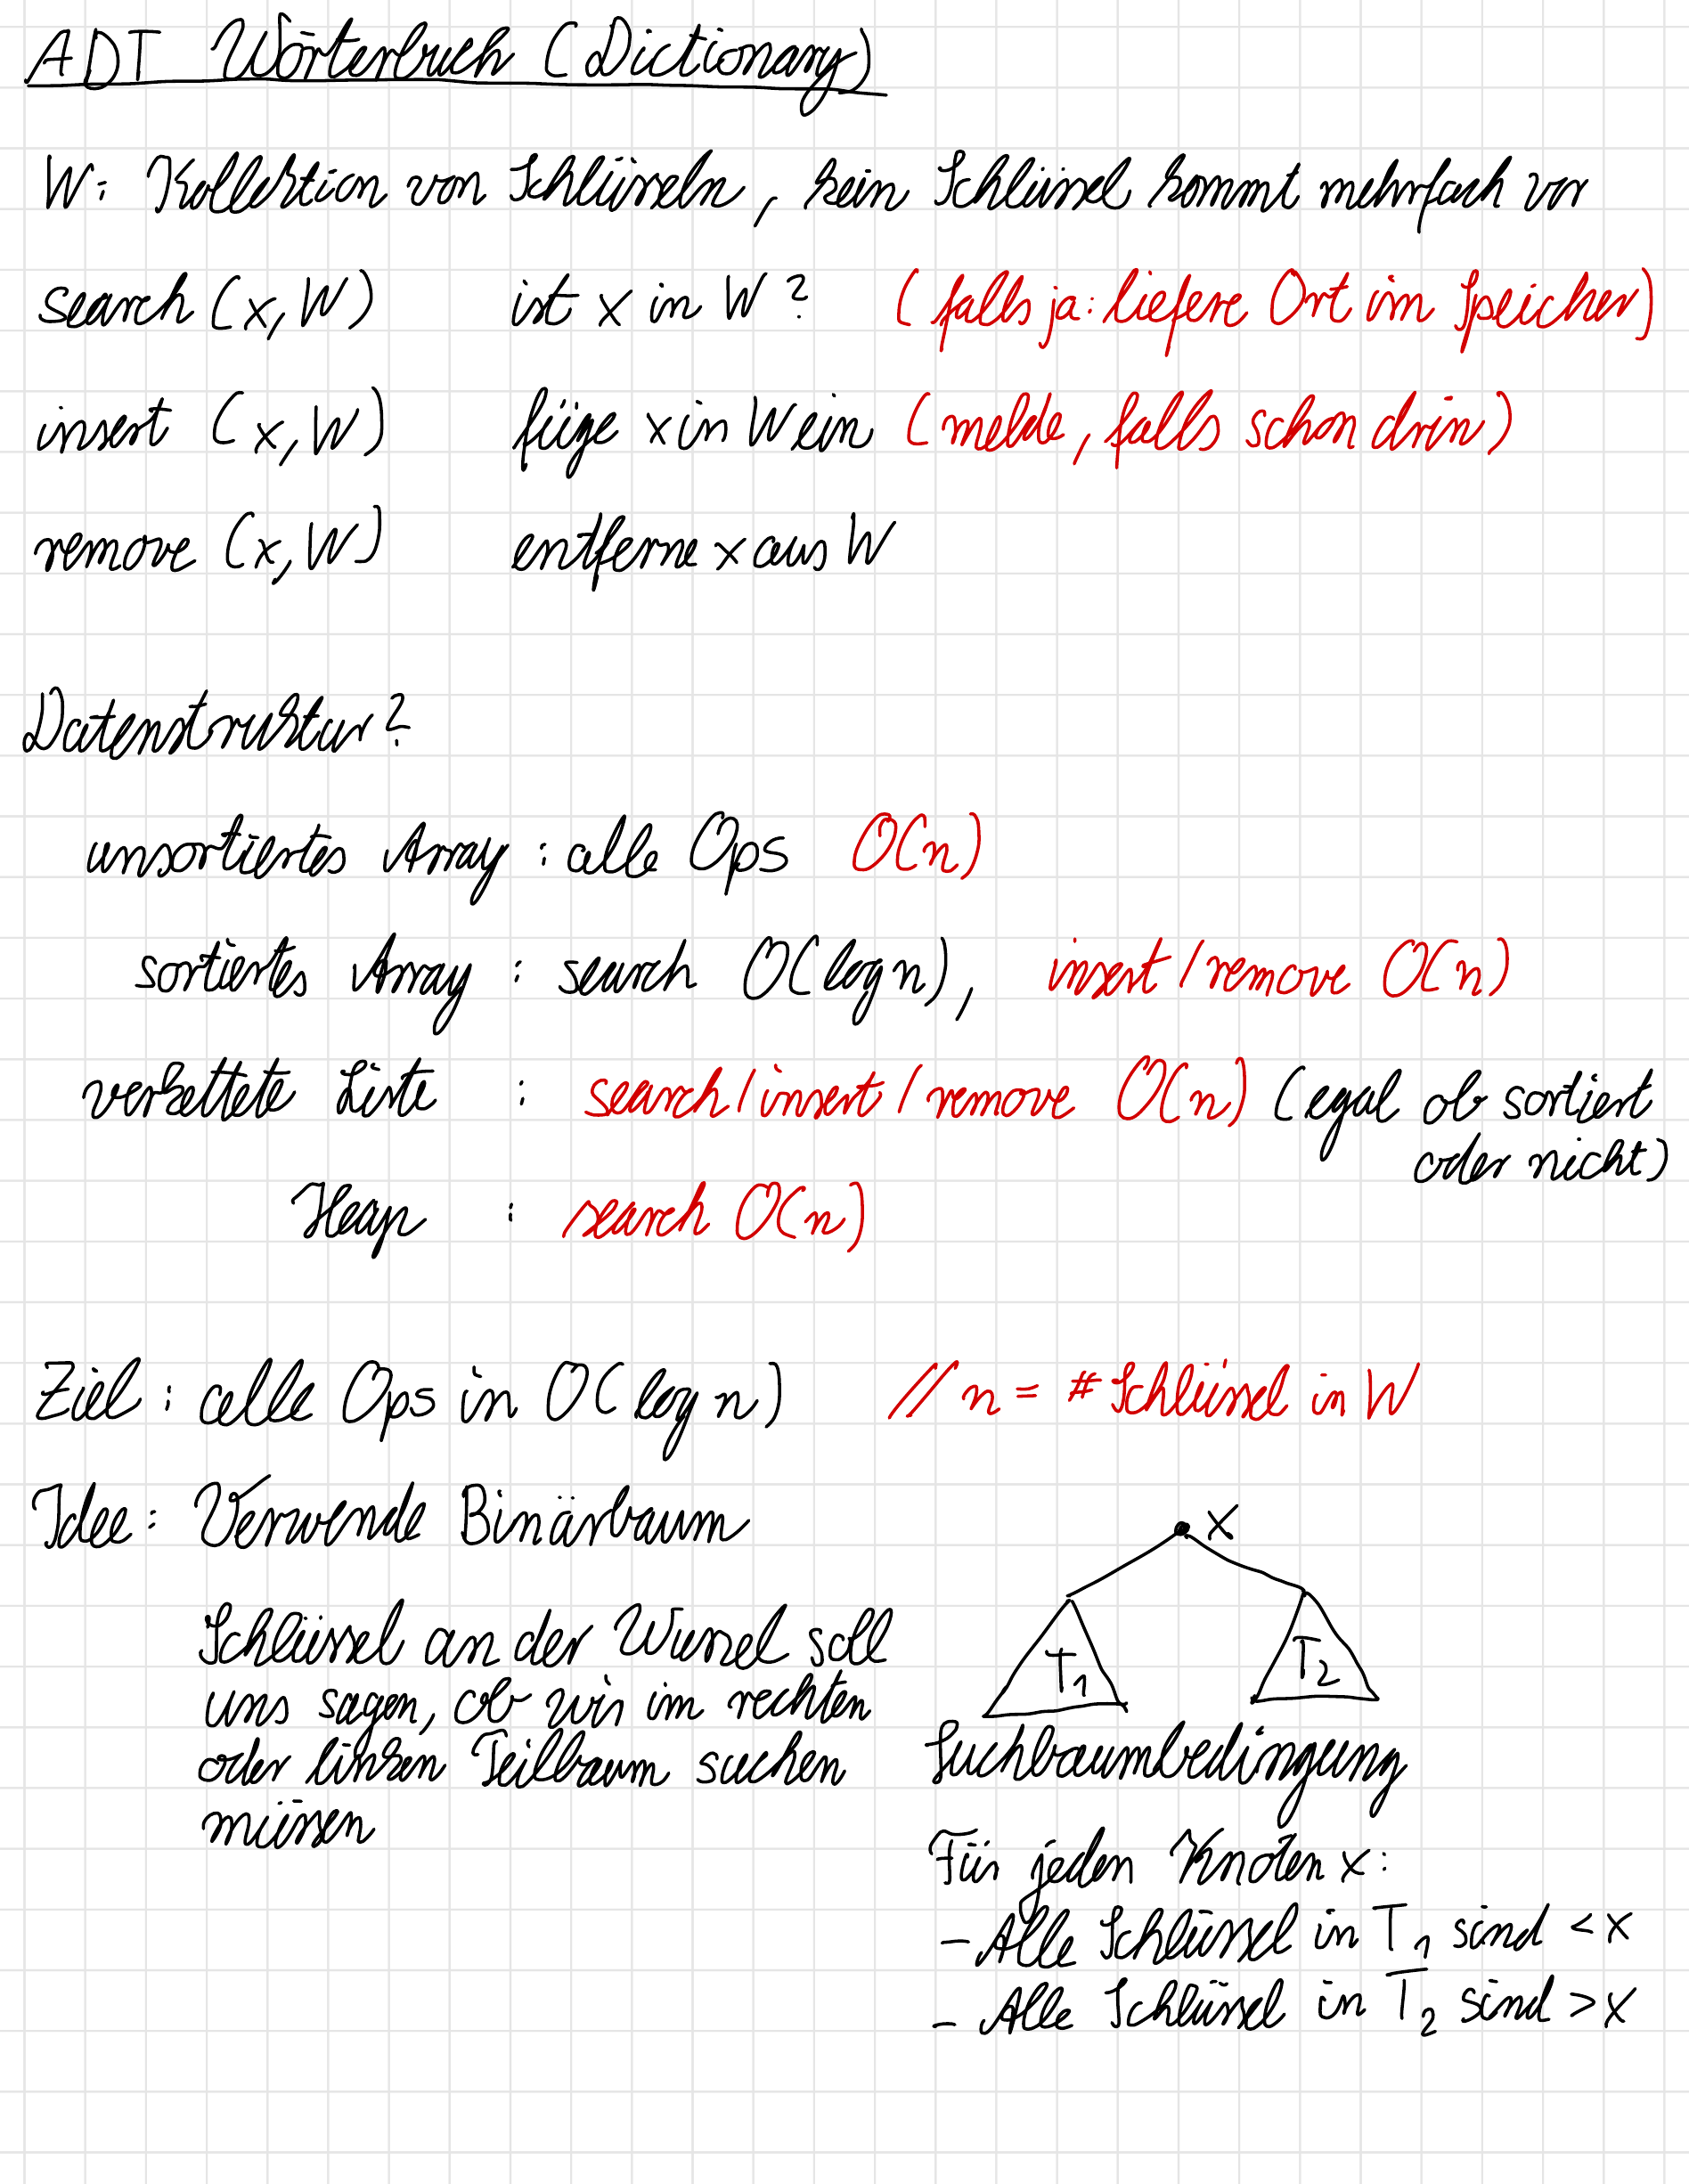 ADT Wörterbuch (Dictionary)
W: Kollektion von Schlüsseln, kein Schlüssel kommt mehrfach vor
search (x, W) ist x in W? (falls ja: liefere Ort im Speicher)
insert (x, W) füge x in W ein (melde, falls schon drin)
remove (x, W) entferne x aus W
Datenstruktur?
unsortiertes Array : alle Ops O(n)
sortiertes Array : search O(log n), insert / remove O(n)
verkettete Liste : search / insert / remove O(n) (egal ob sortiert
oder nicht)
Heap : search O(n)
Ziel : alle Ops in O(log n) // n = # Schlüssel in W
Idee : Verwende Binärbaum
x
Schlüssel an der Wurzel soll
uns sagen, ob wir im rechten
oder linken Teilbaum suchen
müssen
T₁ T₂
Suchbaumbedingung
Für jeden Knoten x:
- Alle Schlüssel in T₁ sind < x
- Alle Schlüssel in T₂ sind > x